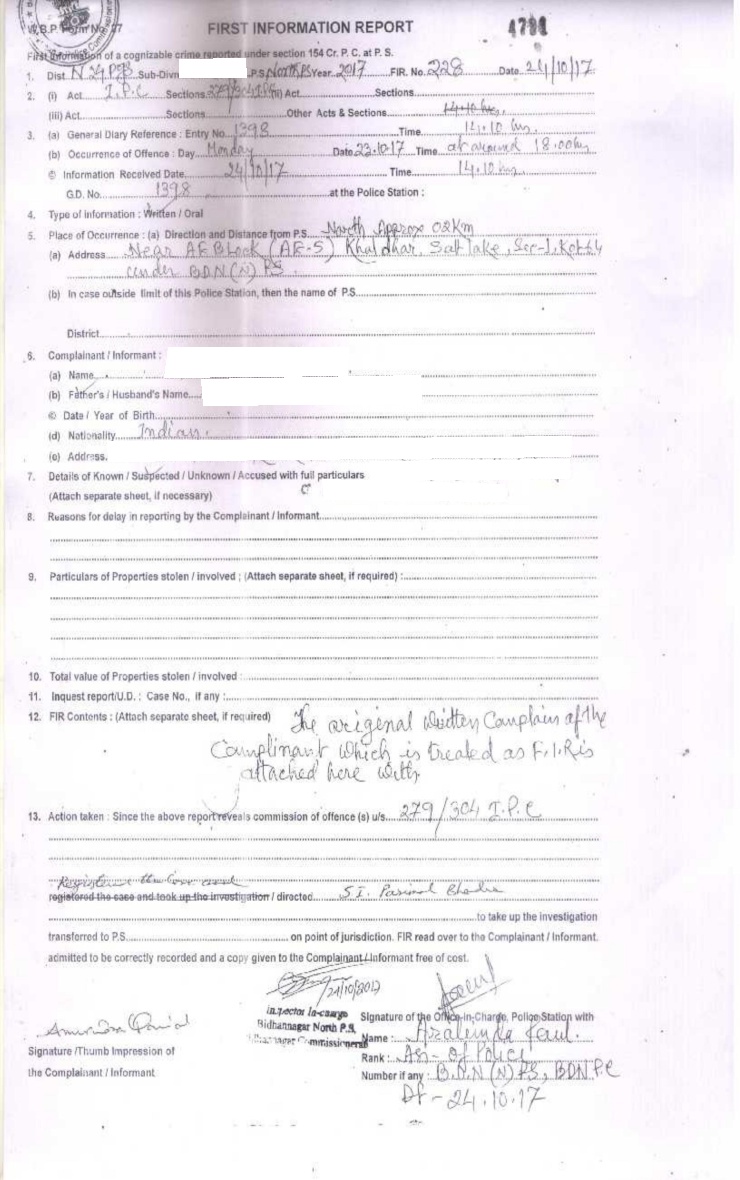 W.B.P. Form No. 27
FIRST INFORMATION REPORT 4781
First Information of a cognizable crime reported under section 154 Cr. P. C. at P. S.
1. Dist. N 24 PGS Sub-Divn P.S. North PS Year 2017 FIR. No. 228 Date 24/10/17
2. (i) Act I.P.C Sections 279/304 I.P.C (ii) Act Sections
(iii) Act Sections Other Acts & Sections 14.10 hrs.
3. (a) General Diary Reference : Entry No. 1398 Time 14.10 hrs.
(b) Occurrence of Offence : Day Monday Date 23.10.17 Time at around 18.00 hrs
© Information Received Date 24/10/17 Time 14.10 hrs
G.D. No. 1398 at the Police Station :
4. Type of information : Written / Oral
5. Place of Occurrence : (a) Direction and Distance from P.S. North Approx 02 Km
(a) Address Near AE Block (AE-5) Khaldhar, Salt Lake, Sec-I, Kol-64
under BDN(N) PS.
(b) In case outside limit of this Police Station, then the name of P.S.
District
6. Complainant / Informant :
(a) Name
(b) Father's / Husband's Name
© Date / Year of Birth
(d) Nationality Indian.
(e) Address.
7. Details of Known / Suspected / Unknown / Accused with full particulars
(Attach separate sheet, if necessary)
8. Reasons for delay in reporting by the Complainant / Informant
9. Particulars of Properties stolen / involved ; (Attach separate sheet, if required) :
10. Total value of Properties stolen / involved :
11. Inquest report/U.D. : Case No., if any :
12. FIR Contents : (Attach separate sheet, if required) The origenal written Complain of the
Complinant which is treated as F.I.R is
attached here with
13. Action taken : Since the above report reveals commission of offence (s) u/s. 279/304 I.P.C
Registered the
registered the case and took up the investigation / directed S.I. Parimal Bhadra
to take up the investigation
transferred to P.S. on point of jurisdiction. FIR read over to the Complainant / Informant.
admitted to be correctly recorded and a copy given to the Complainant / Informant free of cost.
24/10/2017
Inspector In-charge
Bidhannagar North P.S.
Commissionerate
Signature of the Officer-In-Charge, Police Station with
Name :
Rank : of Police
Number if any : B.D.N (N) PS, BDN PC
Dt - 24.10.17
Signature /Thumb Impression of
the Complainant / Informant